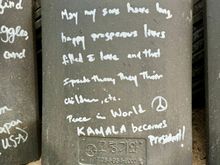 May my sons have long,
happy prosperous lives
filled love and that
spreads
children, etc.
Peace in World
KAMALA becomes
President!!
and
ggles
and
USA